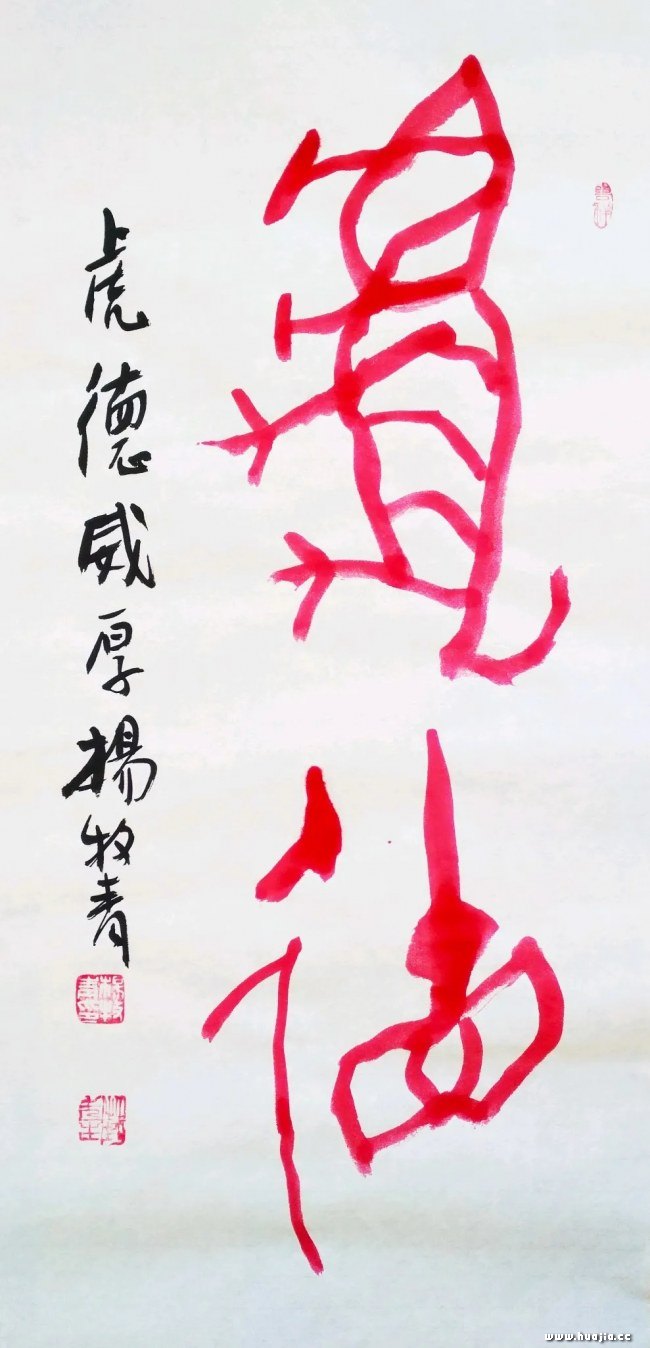 虎德
虎德威厚楊牧青
www.huajia.cc